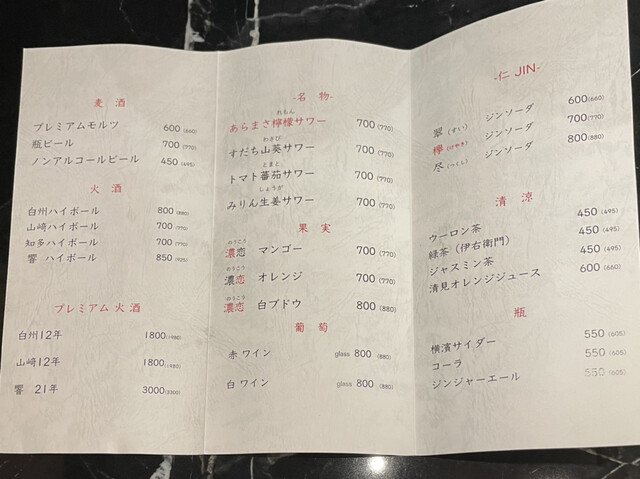 麦 酒
プレミアムモルツ 600 (660)
瓶ビール 700 (770)
ノンアルコールビール 450 (495)
火 酒
白州ハイボール 800 (880)
山崎ハイボール 700 (770)
知多ハイボール 700 (770)
響 ハイボール 850 (925)
プレミアム 火 酒
白州12年 1800 (1980)
山崎12年 1800 (1980)
響 21年 3000 (3300)
-名 物-
れもん
あらまさ檸檬サワー 700 (770)
わさび
すだち山葵サワー 700 (770)
とまと
トマト蕃茄サワー 700 (770)
しょうが
みりん生姜サワー 700 (770)
果 実
のうこう
濃恋 マンゴー 700 (770)
のうこう
濃恋 オレンジ 700 (770)
のうこう
濃恋 白ブドウ 800 (880)
葡 萄
赤ワイン glass 800 (880)
白ワイン glass 800 (880)
-仁 JIN-
翠 (すい) ジンソーダ 600 (660)
欅 (けやき) ジンソーダ 700 (770)
尽 (つくし) ジンソーダ 800 (880)
清 涼
ウーロン茶 450 (495)
緑茶 (伊右衛門) 450 (495)
ジャスミン茶 450 (495)
清見オレンジジュース 600 (660)
瓶
横濱サイダー 550 (605)
コーラ 550 (605)
ジンジャーエール 550 (605)